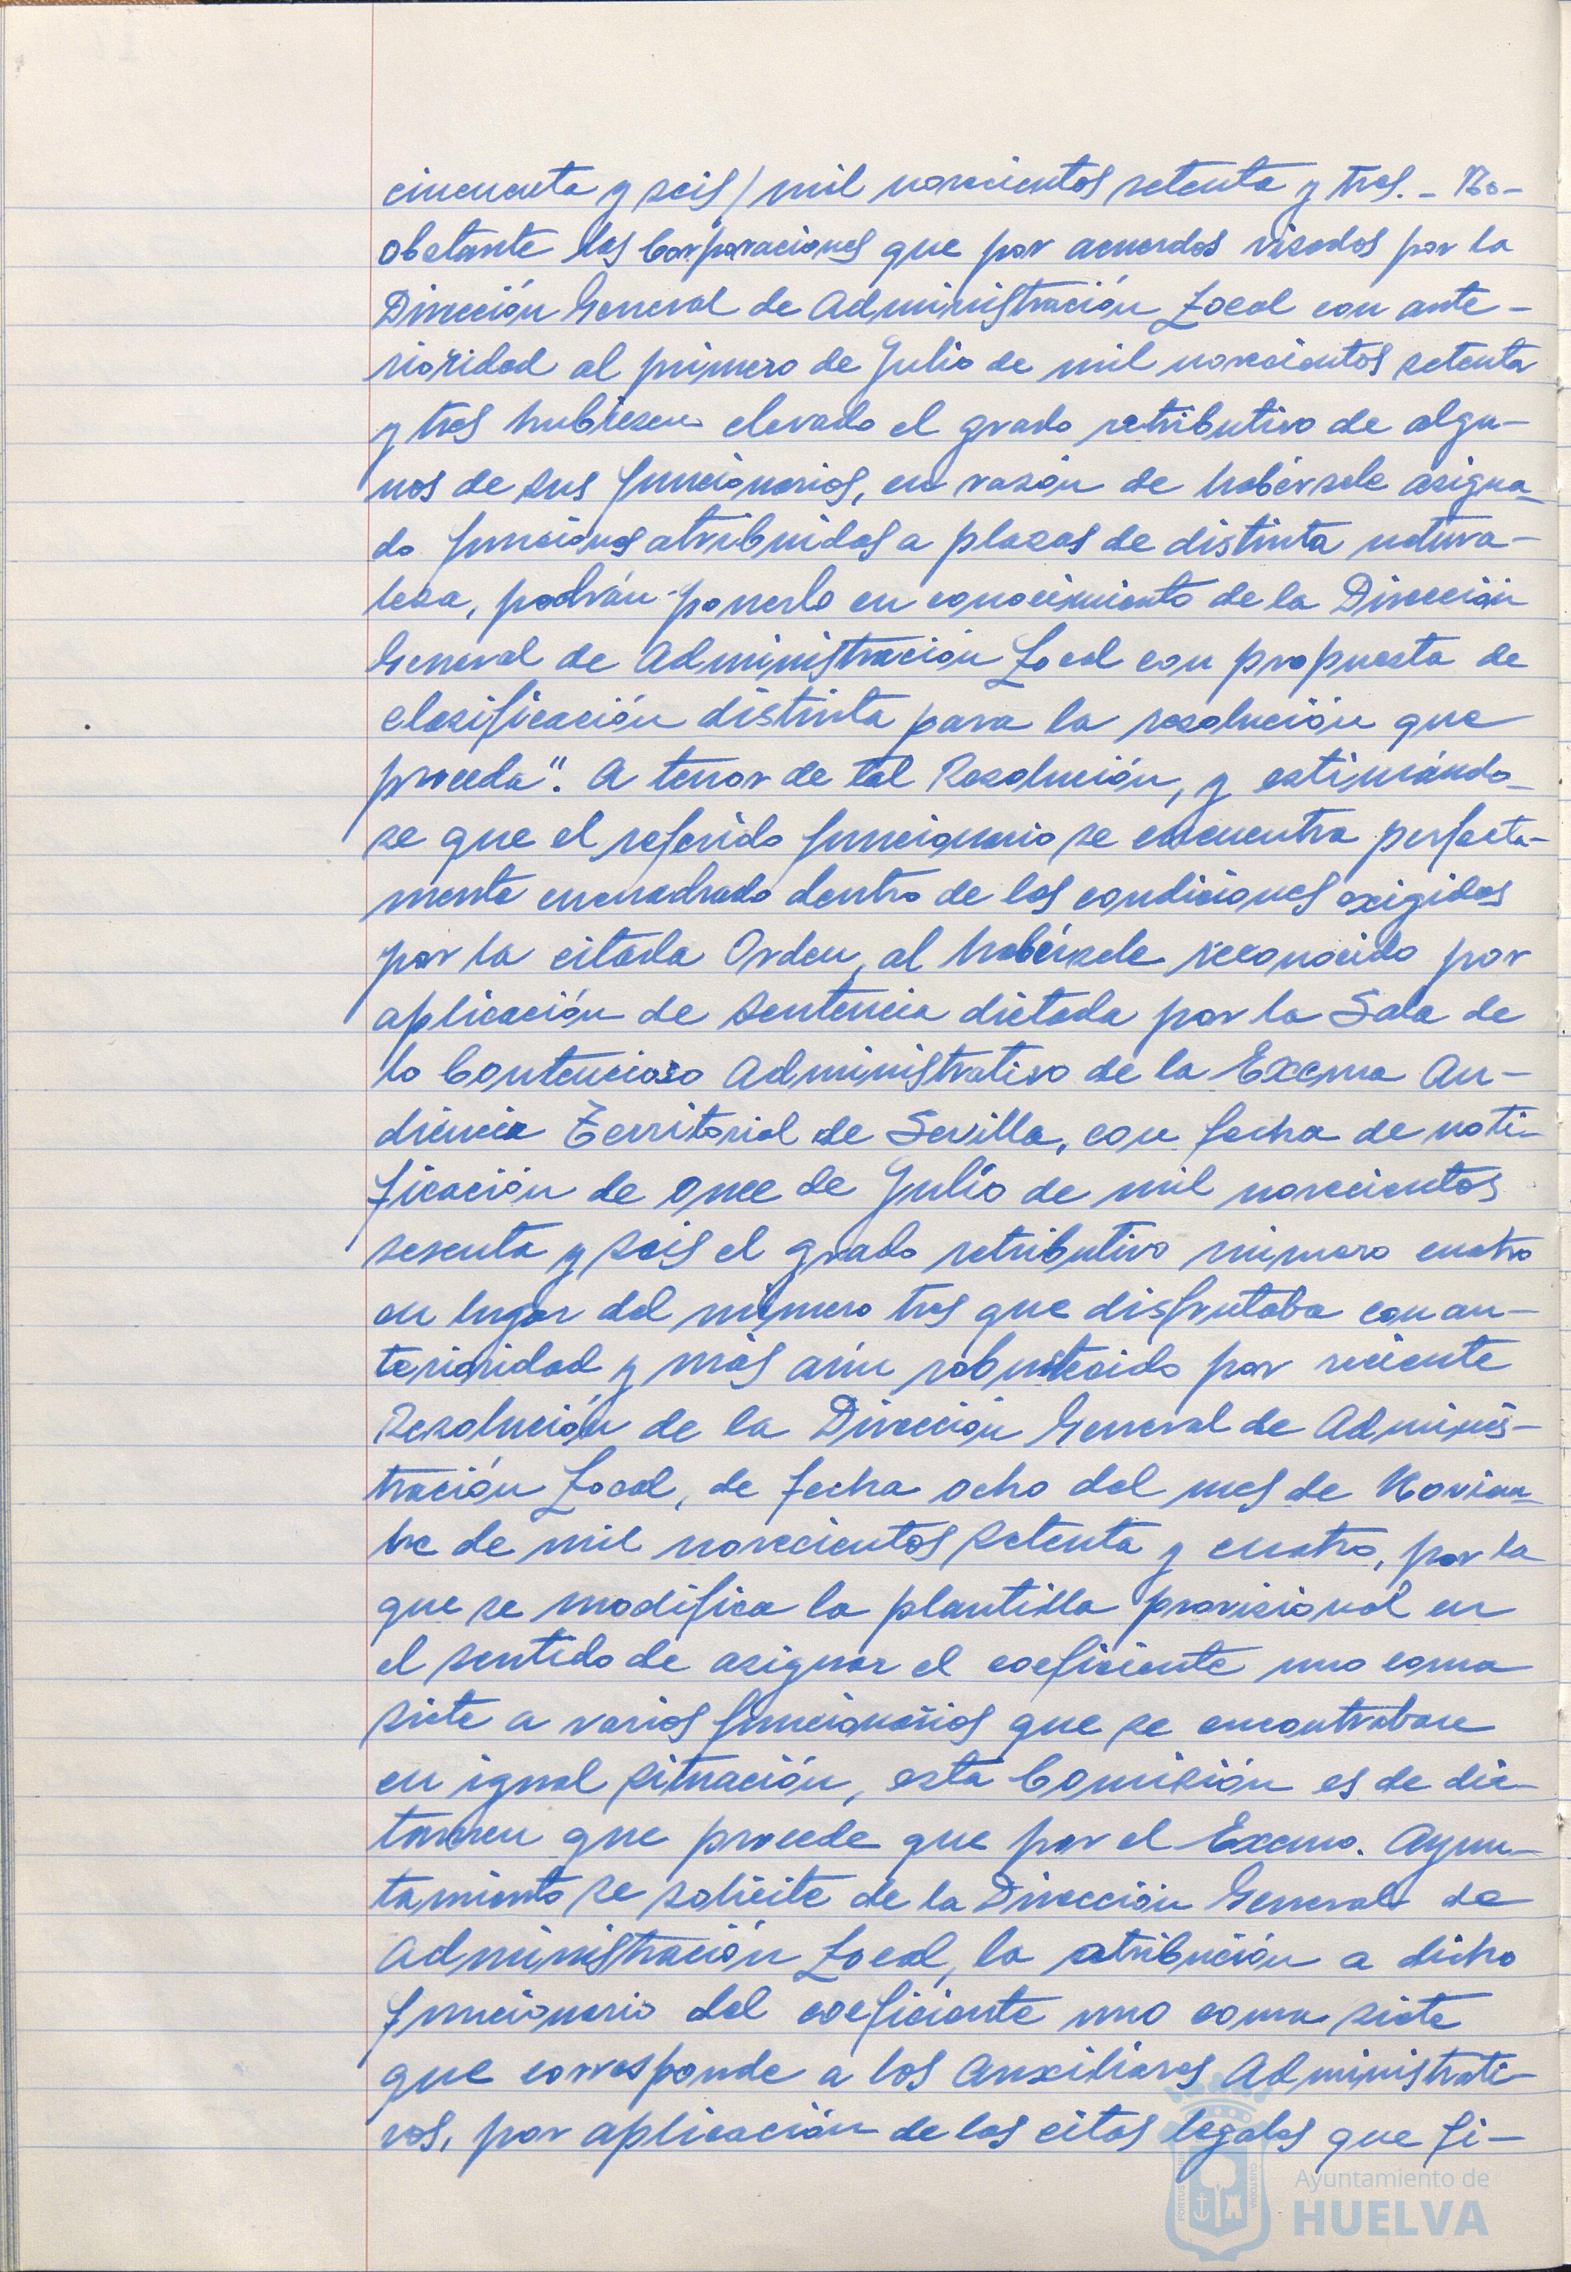 cincuenta y seis/mil novecientos setenta y tres.- No-
obstante las Corporaciones que por acuerdos visados por la
Dirección General de Administración Local con ante-
rioridad al primero de Julio de mil novecientos setenta
y tres hubiesen elevado el grado retributivo de algu-
nos de sus funcionarios, en razón de habérsele asigna-
do funciones atribuidas a plazas de distinta natura-
leza, podrán ponerlo en conocimiento de la Dirección
General de Administración Local con propuesta de
clasificación distinta para la resolución que
proceda". A tenor de tal Resolución, y estimándo-
se que el referido funcionario se encuentra perfecta-
mente encuadrado dentro de las condiciones exigidas
por la citada Orden, al habérsele reconocido por
aplicación de sentencia dictada por la Sala de
lo Contencioso Administrativo de la Excma Au-
diencia Territorial de Sevilla, con fecha de noti-
ficación de once de Julio de mil novecientos
sesenta y seis el grado retributivo número cuatro
en lugar del número tres que disfrutaba con an-
terioridad y más aún robustecido por reciente
Resolución de la Dirección General de Adminis-
tración Local, de fecha ocho del mes de Noviem-
bre de mil novecientos setenta y cuatro, por la
que se modifica la plantilla provisional en
el sentido de asignar el coeficiente uno coma
siete a varios funcionarios que se encontraban
en igual situación, esta Comisión es de dic-
tamen que procede que por el Excmo. Ayun-
tamiento se solicite de la Dirección General de
Administración Local, la atribución a dicho
funcionario del coeficiente uno coma siete
que corresponde a los Auxiliares Administrati-
vos, por aplicación de las citas legales que fi-
Ayuntamiento de
HUELVA